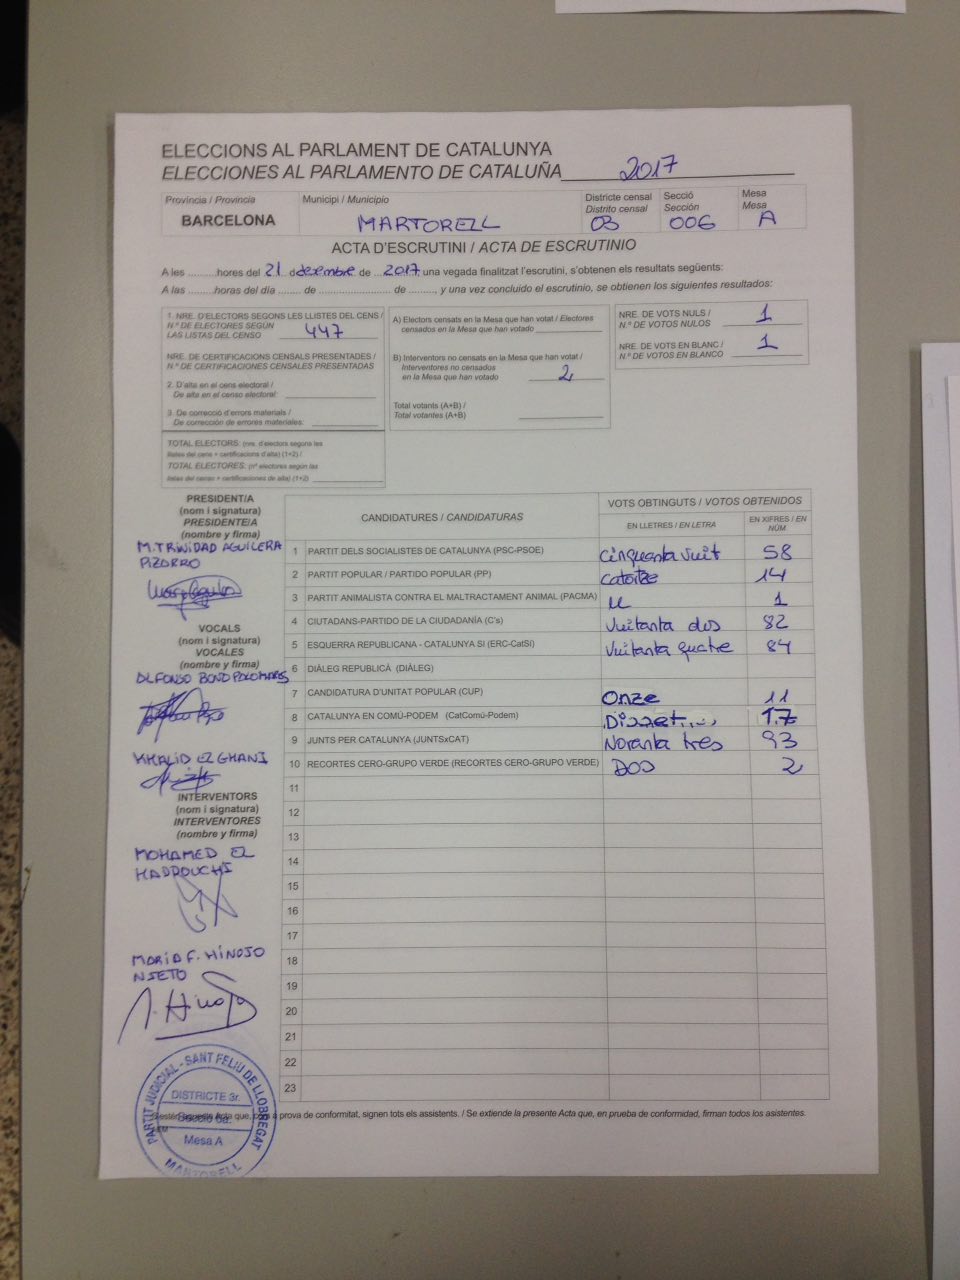 ELECCIONS AL PARLAMENT DE CATALUNYA
ELECCIONES AL PARLAMENTO DE CATALUÑA 2017
Província / Provincia
BARCELONA
Municipi / Municipio
MARTORELL
Districte censal
Distrito censal
03
Secció
Sección
006
Mesa
Mesa
A
ACTA D'ESCRUTINI / ACTA DE ESCRUTINIO
A les .........hores del 21 d desembre de ... 2017 una vegada finalitzat l'escrutini, s'obtenen els resultats següents:
A las .........horas del día ........ de ......................... de ........., y una vez concluido el escrutinio, se obtienen los siguientes resultados:
1. NRE. D'ELECTORS SEGONS LES LLISTES DEL CENS /
N.º DE ELECTORES SEGÚN
LAS LISTAS DEL CENSO 447
NRE. DE CERTIFICACIONS CENSALS PRESENTADES /
N.º DE CERTIFICACIONES CENSALES PRESENTADAS
2. D'alta en el cens electoral /
De alta en el censo electoral:
3. De correcció d'errors materials /
De corrección de errores materiales:
TOTAL ELECTORS: (nre. d'electors segons les
llistes del cens + certificacions d'alta) (1+2) /
TOTAL ELECTORES: (nº electores según las
listas del censo + certificaciones de alta) (1+2)
A) Electors censats en la Mesa que han votat / Electores
censados en la Mesa que han votado
B) Interventors no censats en la Mesa que han votat /
Interventores no censados
en la Mesa que han votado 2
Total votants (A+B) /
Total votantes (A+B)
NRE. DE VOTS NULS /
N.º DE VOTOS NULOS 1
NRE. DE VOTS EN BLANC /
N.º DE VOTOS EN BLANCO 1
PRESIDENT/A
(nom i signatura)
PRESIDENTE/A
(nombre y firma)
M. TRINIDAD AGUILERA
PIZARRO
VOCALS
(nom i signatura)
VOCALES
(nombre y firma)
ALFONSO BONO PALOMARES
KHALID EL GHANI
INTERVENTORS
(nom i signatura)
INTERVENTORES
(nombre y firma)
MOHAMED EL
HADDOUCHI
MARIA F. HINOJO
NIETO
CANDIDATURES / CANDIDATURAS
VOTS OBTINGUTS / VOTOS OBTENIDOS
EN LLETRES / EN LETRA
EN XIFRES / EN NÚM
1 PARTIT DELS SOCIALISTES DE CATALUNYA (PSC-PSOE) cinquanta vuit 58
2 PARTIT POPULAR / PARTIDO POPULAR (PP) catorze 14
3 PARTIT ANIMALISTA CONTRA EL MALTRACTAMENT ANIMAL (PACMA) u 1
4 CIUTADANS-PARTIDO DE LA CIUDADANÍA (C's) Vuitanta dos 82
5 ESQUERRA REPUBLICANA - CATALUNYA SI (ERC-CatSí) Vuitanta quatre 84
6 DIÀLEG REPUBLICÀ (DIÀLEG)
7 CANDIDATURA D'UNITAT POPULAR (CUP) Onze 11
8 CATALUNYA EN COMÚ-PODEM (CatComú-Podem) Disset 17
9 JUNTS PER CATALUNYA (JUNTSxCAT) Noranta tres 93
10 RECORTES CERO-GRUPO VERDE (RECORTES CERO-GRUPO VERDE) DOS 2
11
12
13
14
15
16
17
18
19
20
21
22
23
PARTIT JUDICIAL - SANT FELIU DE LLOBREGAT
DISTRICTE 3r.
Secció 6a.
Mesa A
MARTORELL
aquesta Acta que, com a prova de conformitat, signen tots els assistents. / Se extiende la presente Acta que, en prueba de conformidad, firman todos los asistentes.